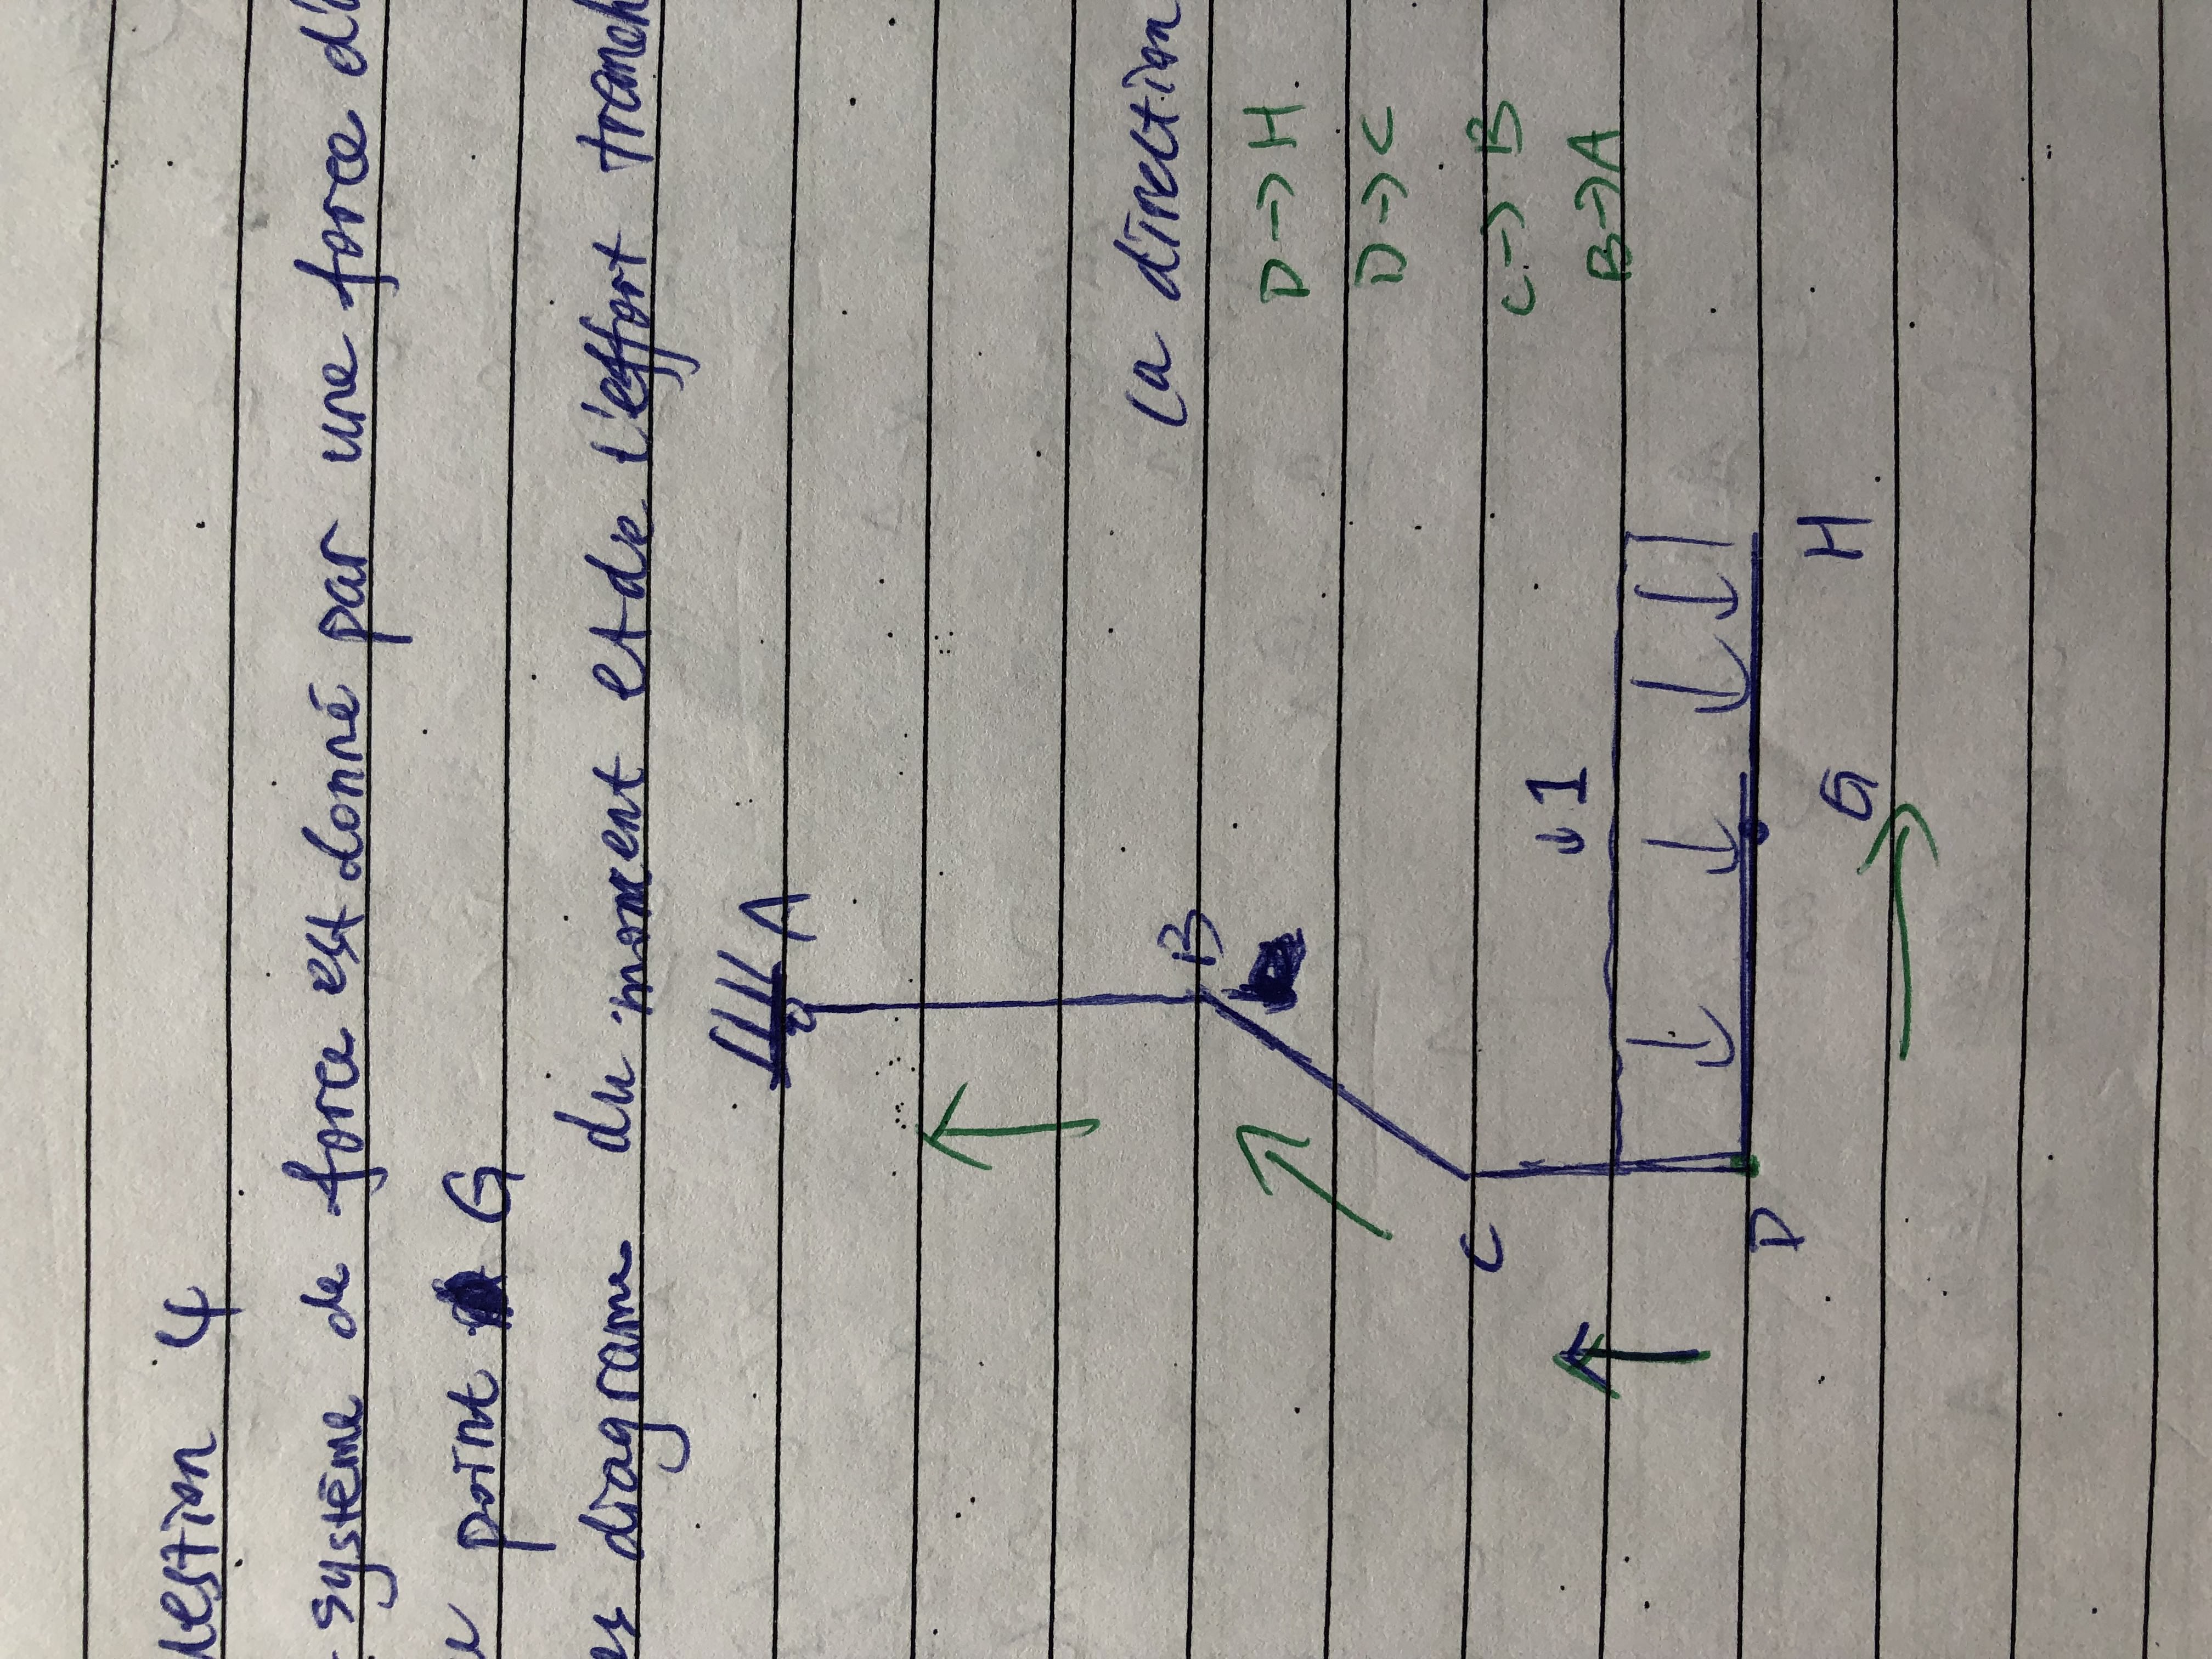 estion 4
système de force est donné par une force d'
point G
diagrame du moment et de l'effort tranch
A
La direction
B
D → H
D → C
C
C → B
↓ 1
B → A
D
G
H